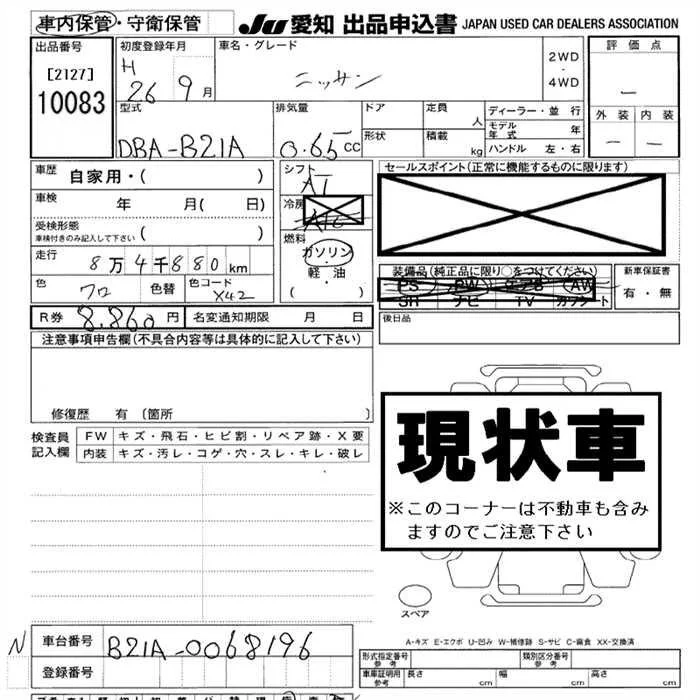 車内保管・守衛保管
JU 愛知 出品申込書 JAPAN USED CAR DEALERS ASSOCIATION
出品番号 初度登録年月 車名・グレード 評価点
[2127] H ニッサン 2WD
10083 26 9月 ・ ー
4WD
型式 排気量 ドア 定員 人 ディーラー・並行 外装 内装
DBA-B21A 0.65CC 形状 積載 kg モデル年式 年 ー ー
ハンドル 左・右
車歴 自家用・( ) シフト セールスポイント(正常に機能するものに限ります)
AT
車検 年 月( 日) 冷房
A/C
受検形態 ( )
車検付きのみ記入して下さい
燃料
走行 8万4千880km ガソリン 装備品(純正品に限り○をつけてください) 新車保証書
軽・油 PS PW エアB AW 有・無
色 クロ 色替 色コード X42 ( ) SR ナビ TV カワシート
R券 8.860円 名変通知期限 月 日 後日品
注意事項申告欄(不具合内容等は具体的に記入して下さい)
現状車
修復歴 有 〔箇所 〕
検査員 FW キズ・飛石・ヒビ割・リペア跡・X要
記入欄 内装 キズ・汚レ・コゲ・穴・スレ・キレ・破レ
※このコーナーは不動車も含み
ますのでご注意下さい
スペア
A-キズ E-エクボ U-凹み W-補修跡 S-サビ C-腐食 XX-交換済
N 車台番号 B21A-0068196 形式指定番号 参考 類別区分番号 参考
登録番号 車庫証明用 参考 長さ cm 幅 cm 高さ cm